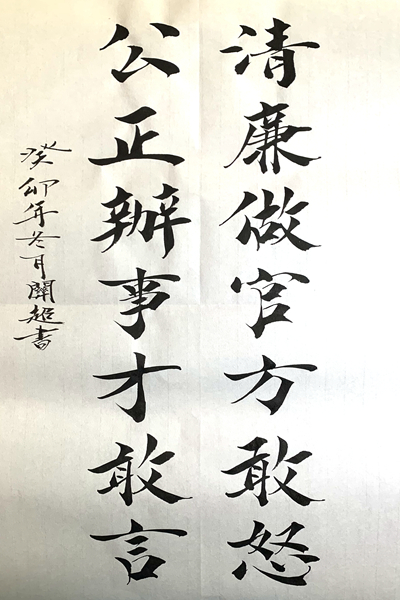 清廉做官方敢怒
公正辦事才敢言
癸卯年冬月開超書